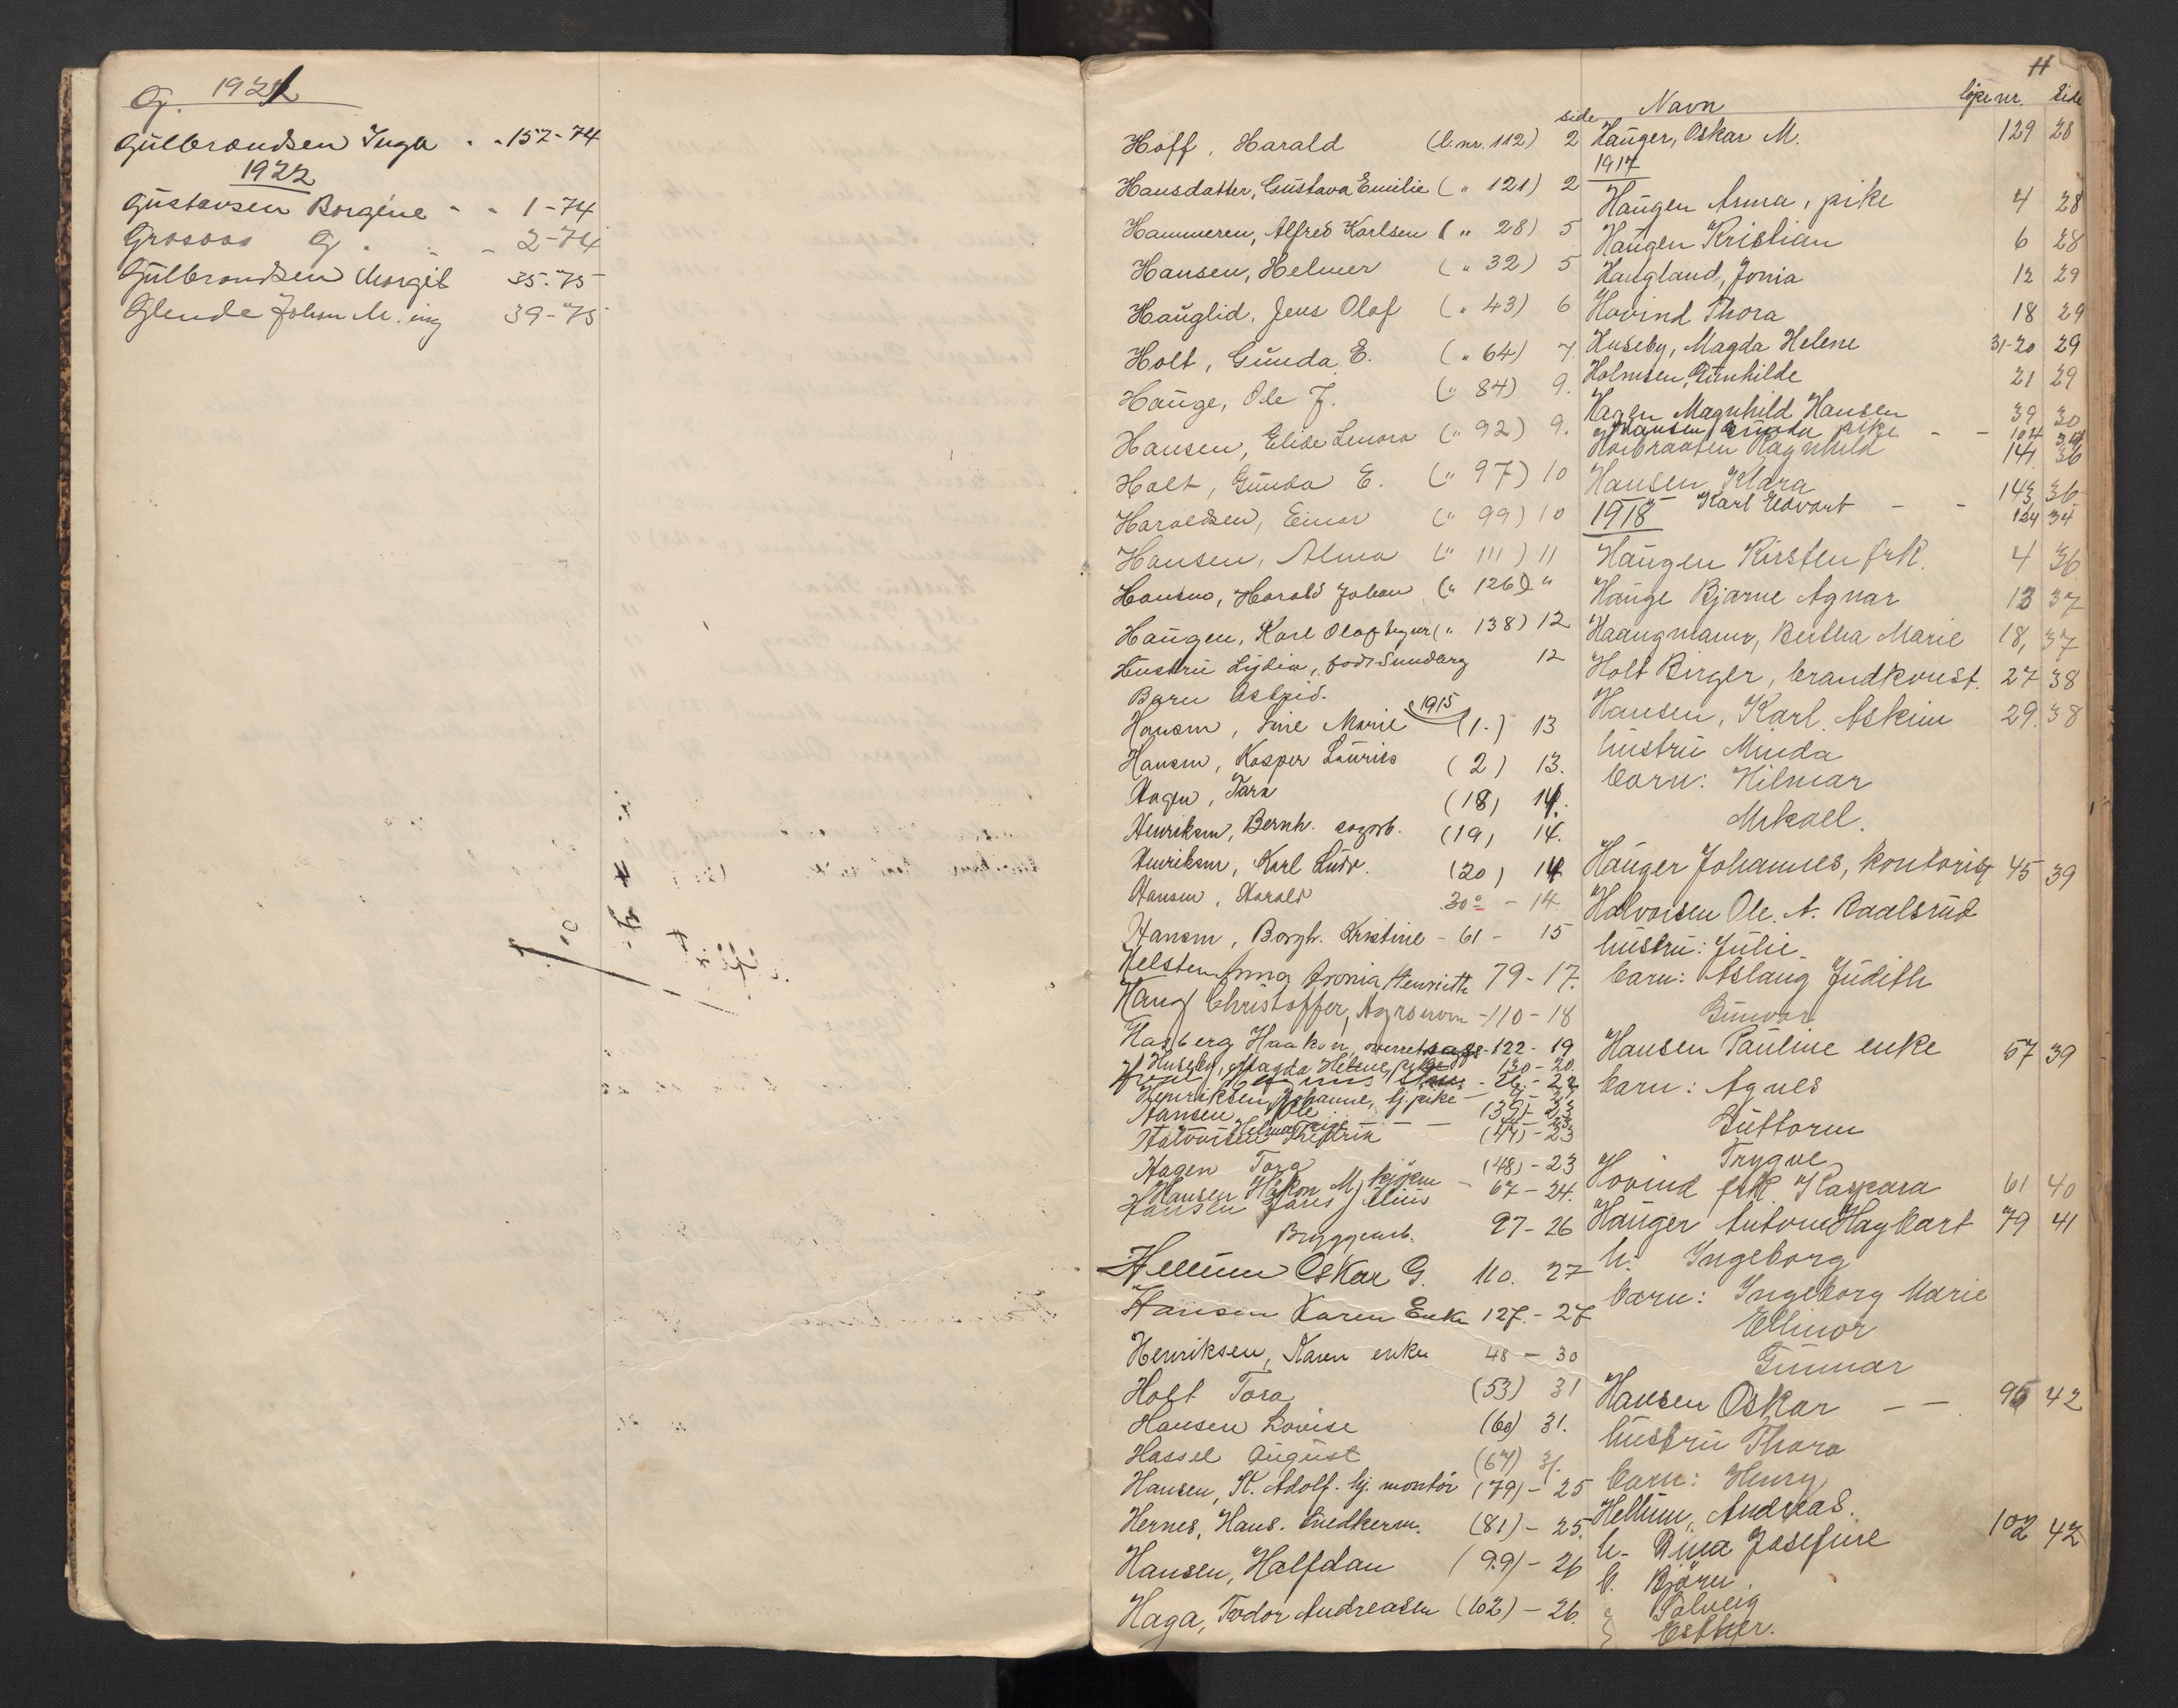 G. 1921
Gulbrandsen Inga - - 152-74
1922
Gustavsen Borgine - - 1-74
Grosaas G. - - 2-74
Gulbrandsen Margit 35-75
Glende Johan M. ing 39-75
H
side
Hoff, Harald (l.nr. 112) 2
Hansdatter, Gustava Emilie (" 121) 2
Hammeren, Alfred Karlsen (" 28) 5
Hansen, Helmer (" 32) 5
Hauglid, Jens Olaf (" 43) 6
Holt, Gunda E. (" 64) 7.
Hauge, Ole J. (" 84) 9.
Hansen, Elise Lenora (" 92) 9.
Holt, Gunda E. (" 97) 10
Haroldsen, Einar (" 99) 10
Hansen, Alma (" 111) 11
Hansen, Harald Johan (" 126) "
Haugen, Karl Olaf (" 138) 12
Hustru Lydia, født Sundberg 12
Barn Astrid.
1915
Hansen, Line Marie (1.) 13
Hansen, Kasper Laurits (2) 13.
Hagen, Tara (18) 14.
Henriksen, Bernh. (19) 14.
Henriksen, Karl Ludv. (20) 14
Hansen, Harald 30a - 14
Hansen, Borgh. Kristine - 61 - 15
Helsten Anna Henriette 79 - 17.
Haug Christoffer, Agronom - 110 - 18
Hasberg Haakon, - 122 - 19
Huseby, Magda Helene, pike 130 - 20.
Henriksen, Johanne, tj.pike
Hansen, Ole (39) - 23
Halvorsen Fredrik (44) - 23
Hagen Tora (48) - 23
Hansen Håkon M. - 67 - 24.
Hansen Hans Julius
Bryggearb. 97 - 26
Hellum Oskar G. 110. 27
Hansen Karen Enke 127. - 27
Henriksen, Karen enke 48 - 30
Holt Tora (53) 31
Hansen Lovise (60) 31.
Hassel August (67) 31.
Hansen, K. Adolf. tj. montør (79) - 25
Hernes, Hans. Snedkerm. (81) - 25.
Hansen, Halfdan (99) - 26
Haga, Todor Andreasen (102) - 26.
Navn løpe nr. Side
Hauger, Oskar M. 129 28
1917
Haugen Anna, pike 4 28
Haugen Kristian 6 28
Haugland, Jonia 12 29
Hovind Thora 18 29
Huseby, Magda Helene 31-20 29
Holmsen, Gunhilde 21 29
Hagen Magnhild Hansen 39 30
Hansen Gunda pike - - 104 34
Hoibraaten Ragnhild 141 36
Hansen Klara 143 36
" Karl Edvart - - 124 34
1918
Haugen Kirsten frk. 4 36
Hauge Bjarne Agnar 13 37
Haangmann, Bertha Marie 18, 37
Holt Birger, brandkonst. 27 38
Hansen, Karl. Askim 29. 38
hustru Minda
barn: Hilmar
Mikael.
Hauger Johannes, kontorist 45 39
Halvorsen Ole. A. Raalsrud
hustru: Julie
barn: Aslaug Judith
Gunvor
Hansen Pauline enke 57 39
barn: Agnes
Guttorm
Trygve
Hovind frk. Kaspara 61 40
Hauger Anton Hagbart 79 41
h. Ingeborg
barn: Ingeborg Marie
Ellinor
Gunnar
Hansen Oskar - - 95 42
hustru Thora
barn: Henry
Hellum, Andreas. 102 42
h. Dina Josefine
b. Bjørn.
" Solveig
" Esther.